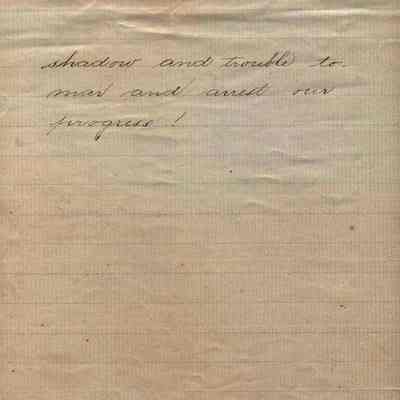 shadow and trouble to
mar and arrest our
progress !